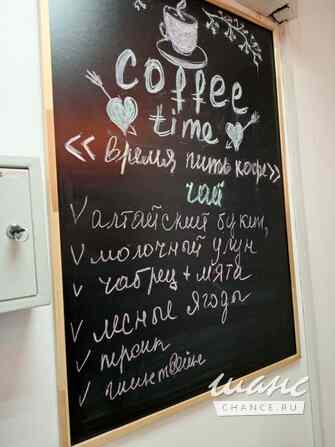 coffee
time
«время пить кофе»
чай
✓ алтайский букет,
✓ молочный улун
✓ чабрец + мята
✓ лесные ягоды
✓ персик
✓ глинтвейн
шанс
CHANCE.RU